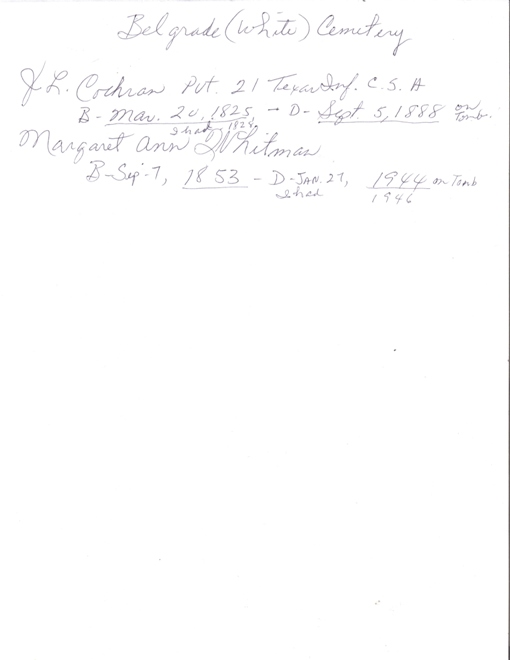 Belgrade (White) Cemetery
J. L. Cochran Pvt. 21 Texas Inf. C.S.A
B- Mar. 20, 1825, - D- Sept 5, 1888 on Tomb.
I had 1828,
Margaret Ann Whitman
B- Sep-7, 1853 - D-JAN. 27, 1944 on Tomb
I had 1946